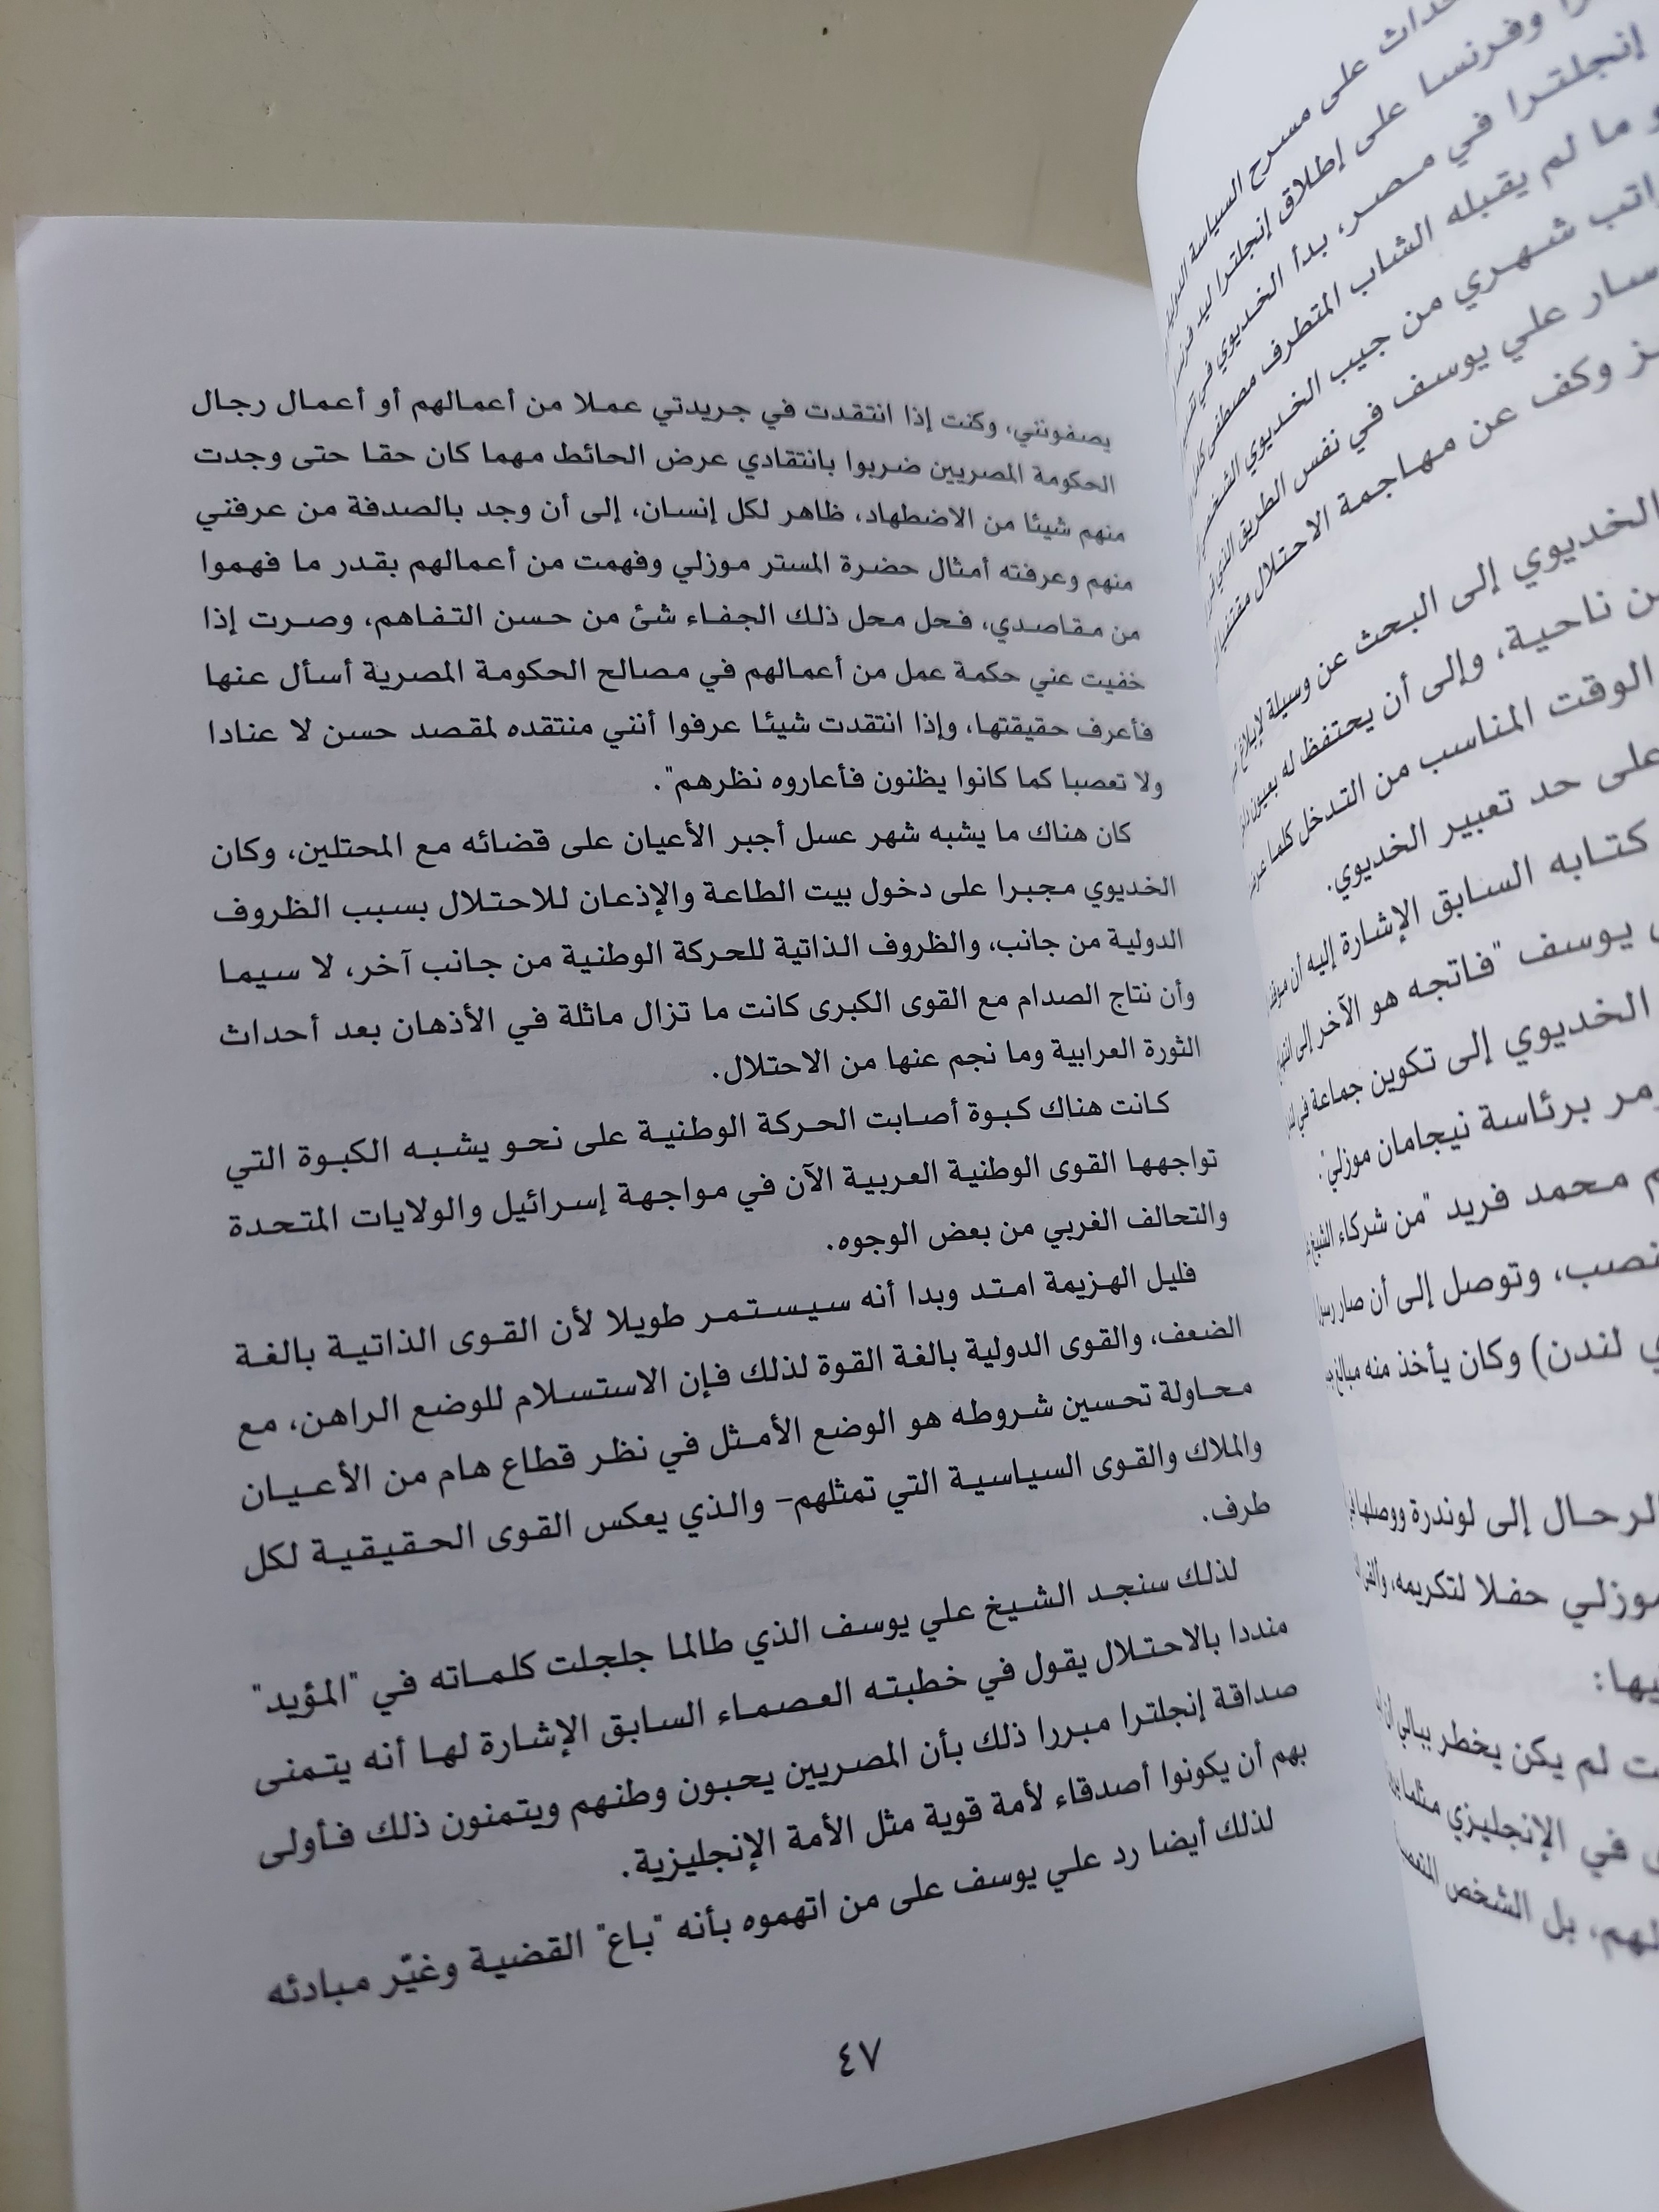 حداث على مسرح السياسة الدولية
وفرنسا على إطلاق إنجلترا ليد فرنسا
إنجلترا في مصر، بدأ الخديوي في
ما لم يقبله الشاب المتطرف مصطفى كامل
راتب شهري من جيب الخديوي
سار علي يوسف في نفس الطريق الذي
وكف عن مهاجمة الاحتلال
الخديوي إلى البحث عن وسيلة لإبلاغ
ناحية، وإلى أن يحتفظ له بعيون
الوقت المناسب من التدخل كلما
على حد تعبير الخديوي.
كتابه السابق الإشارة إليه أن
يوسف "فاتجه هو الآخر إلى
الخديوي إلى تكوين جماعة في
برئاسة نيجامان موزلي".
محمد فريد "من شركاء الشيخ
وتوصل إلى أن صار
لندن) وكان يأخذ منه مبالغ
الرحال إلى لوندرة ووصلها
موزلي حفلا لتكريمه،
لم يكن يخطر ببالي أن
في الإنجليزي مثلما
بل الشخص
يصفونني، وكنت إذا انتقدت في جريدتي عملا من أعمالهم أو أعمال رجال
الحكومة المصريين ضربوا بانتقادي عرض الحائط مهما كان حقا حتى وجدت
منهم شيئا من الاضطهاد، ظاهر لكل إنسان، إلى أن وجد بالصدفة من عرفني
منهم وعرفته أمثال حضرة المستر موزلي وفهمت من أعمالهم بقدر ما فهموا
من مقاصدي، فحل محل ذلك الجفاء شئ من حسن التفاهم، وصرت إذا
خفيت عني حكمة عمل من أعمالهم في مصالح الحكومة المصرية أسأل عنها
فأعرف حقيقتها، وإذا انتقدت شيئا عرفوا أنني منتقده لمقصد حسن لا عنادا
ولا تعصبا كما كانوا يظنون فأعاروه نظرهم".
كان هناك ما يشبه شهر عسل أجبر الأعيان على قضائه مع المحتلين، وكان
الخديوي مجبرا على دخول بيت الطاعة والإذعان للاحتلال بسبب الظروف
الدولية من جانب، والظروف الذاتية للحركة الوطنية من جانب آخر، لا سيما
وأن نتاج الصدام مع القوى الكبرى كانت ما تزال ماثلة في الأذهان بعد أحداث
الثورة العرابية وما نجم عنها من الاحتلال.
كانت هناك كبوة أصابت الحركة الوطنية على نحو يشبه الكبوة التي
تواجهها القوى الوطنية العربية الآن في مواجهة إسرائيل والولايات المتحدة
والتحالف الغربي من بعض الوجوه.
فليل الهزيمة امتد وبدا أنه سيستمر طويلا لأن القوى الذاتية بالغة
الضعف، والقوى الدولية بالغة القوة لذلك فإن الاستسلام للوضع الراهن، مع
محاولة تحسين شروطه هو الوضع الأمثل في نظر قطاع هام من الأعيان
والملاك والقوى السياسية التي تمثلهم– والذي يعكس القوى الحقيقية لكل
طرف.
لذلك سنجد الشيخ علي يوسف الذي طالما جلجلت كلماته في "المؤيد"
منددا بالاحتلال يقول في خطبته العصماء السابق الإشارة لها أنه يتمنى
صداقة إنجلترا مبررا ذلك بأن المصريين يحبون وطنهم ويتمنون ذلك فأولى
بهم أن يكونوا أصدقاء لأمة قوية مثل الأمة الإنجليزية.
لذلك أيضا رد علي يوسف على من اتهموه بأنه "باع" القضية وغيّر مبادئه
٤٧